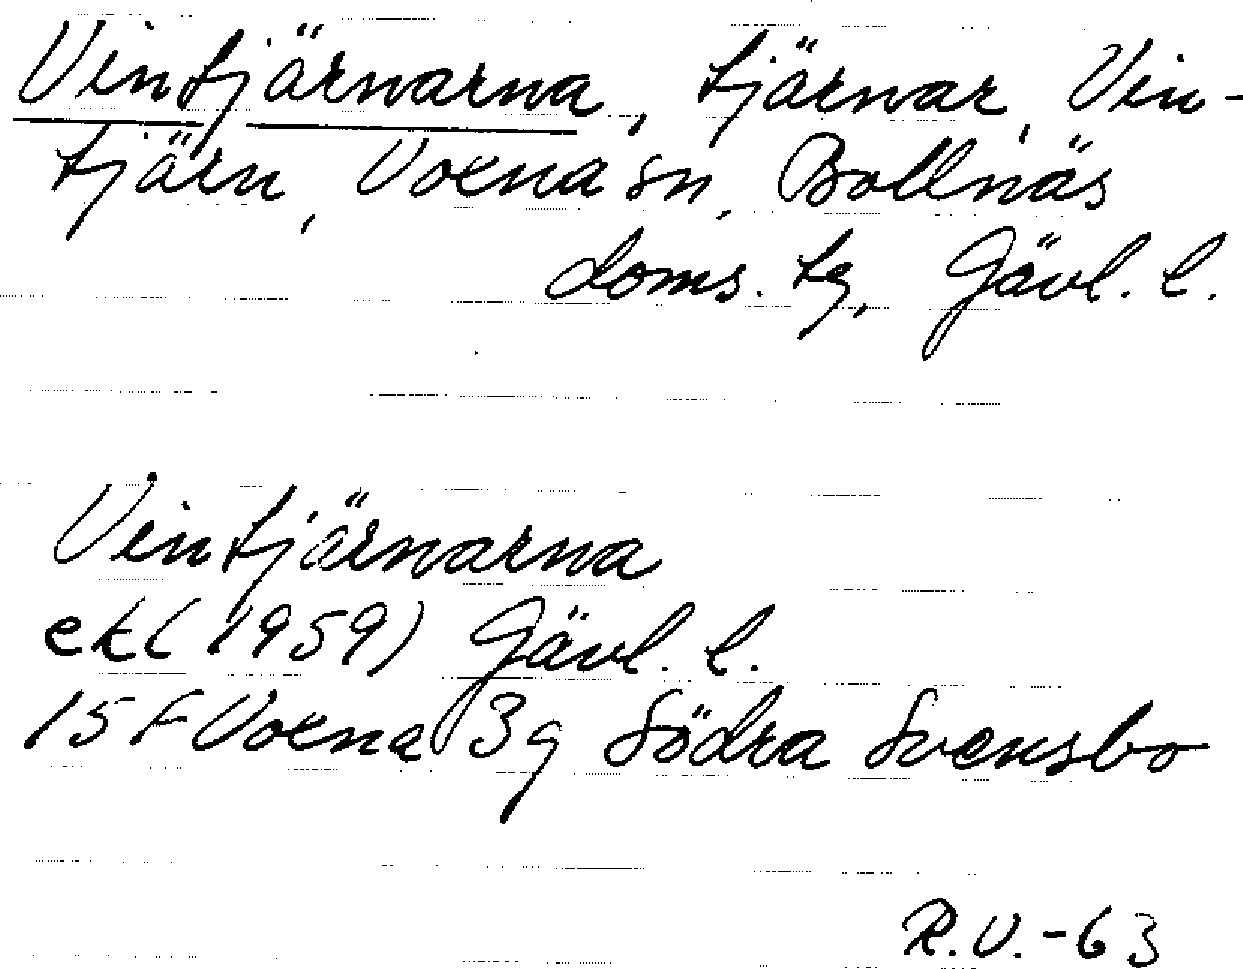 Vintjärnarna, tjärnar, Vin-
tjärn, Voxna sn, Bollnäs
doms. tg, Gävl. l.
Vintjärnarna
ek (1959) Gävl. l.
15 F Voxna 3 g Södra Svensbo
R.V.-63